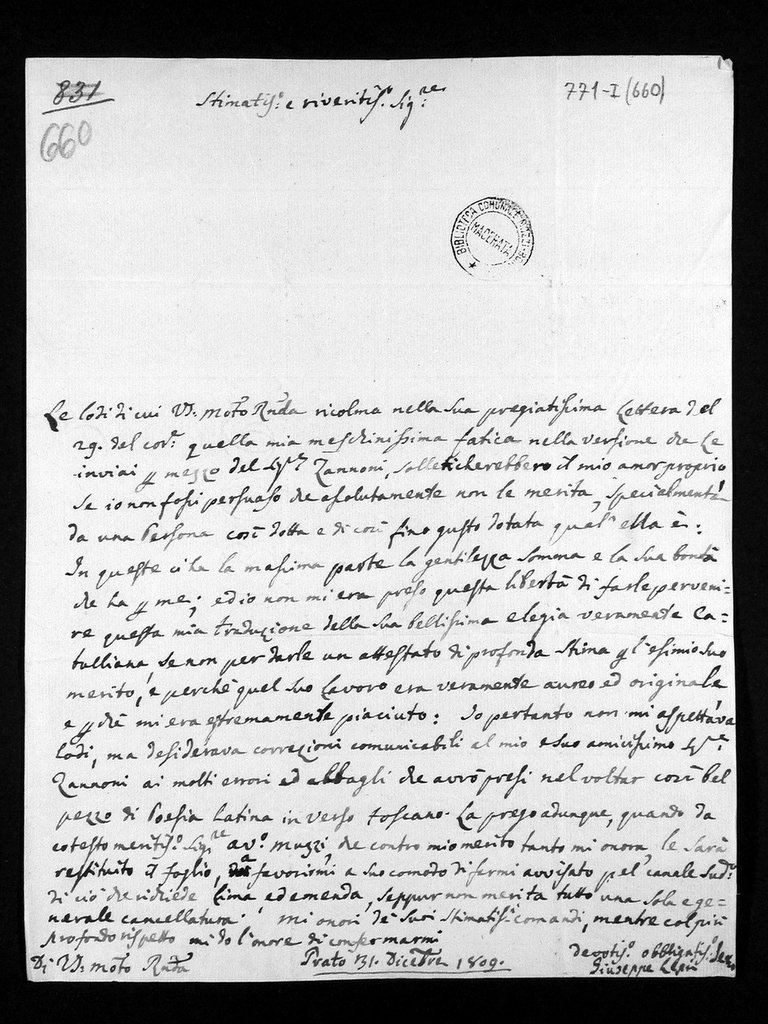 831
660
Stimatis.o e riveritis.o Sig.re
771-I (660)
BIBLIOTECA COMUNALE
MACERATA
Le lodi di cui VS. Molto Rnda ricolma nella sua pregiatissima Lettera del
29. del cor.e quella mia meschinissima fatica nella versione che Le
inviai p mezzo del Sig.re Zannoni, solleticherebbero il mio amor proprio
se io non fossi persuaso che assolutamente non le merita, specialmente
da una Persona così dotta e di così fino gusto dotata qual' ella è:
In queste ci ha la massima parte la gentilezza somma e la sua bontà
che ha p me; ed io non mi era preso questa libertà di farle perveni-
re questa mia traduzione della sua bellissima elegia veramente Ca-
tulliana, se non per darle un attestato di profonda stima p l'esimio suo
merito, e perchè quel suo Lavoro era veramente aureo ed originale
e p chè mi era estremamente piaciuto: Io pertanto non mi aspettava
lodi, ma desiderava correzioni comunicabili al mio e suo amicissimo Sig.re
Zannoni ai molti errori ed abbagli che avrò presi nel voltar così bel
pezzo di Poesia Latina in verso toscano. La prego adunque, quando da
cotesto meritis.o Sig.re av.o Muzzi, che contro mio merito tanto mi onora le sarà
restituito il foglio, a favorirmi a suo comodo di farmi avvisato pel canale sud.o
di ciò che richiede lima, ed emenda, seppur non merita tutto una sola e ge-
nerale cancellatura. Mi onori de' suoi stimatis.i comandi, mentre col più
profondo rispetto mi do l'onore di confermarmi
Di VS. Molto Rnda
Prato 31. Dicembre 1809.
devotis.o obbligatis.o
Giuseppe Lepri